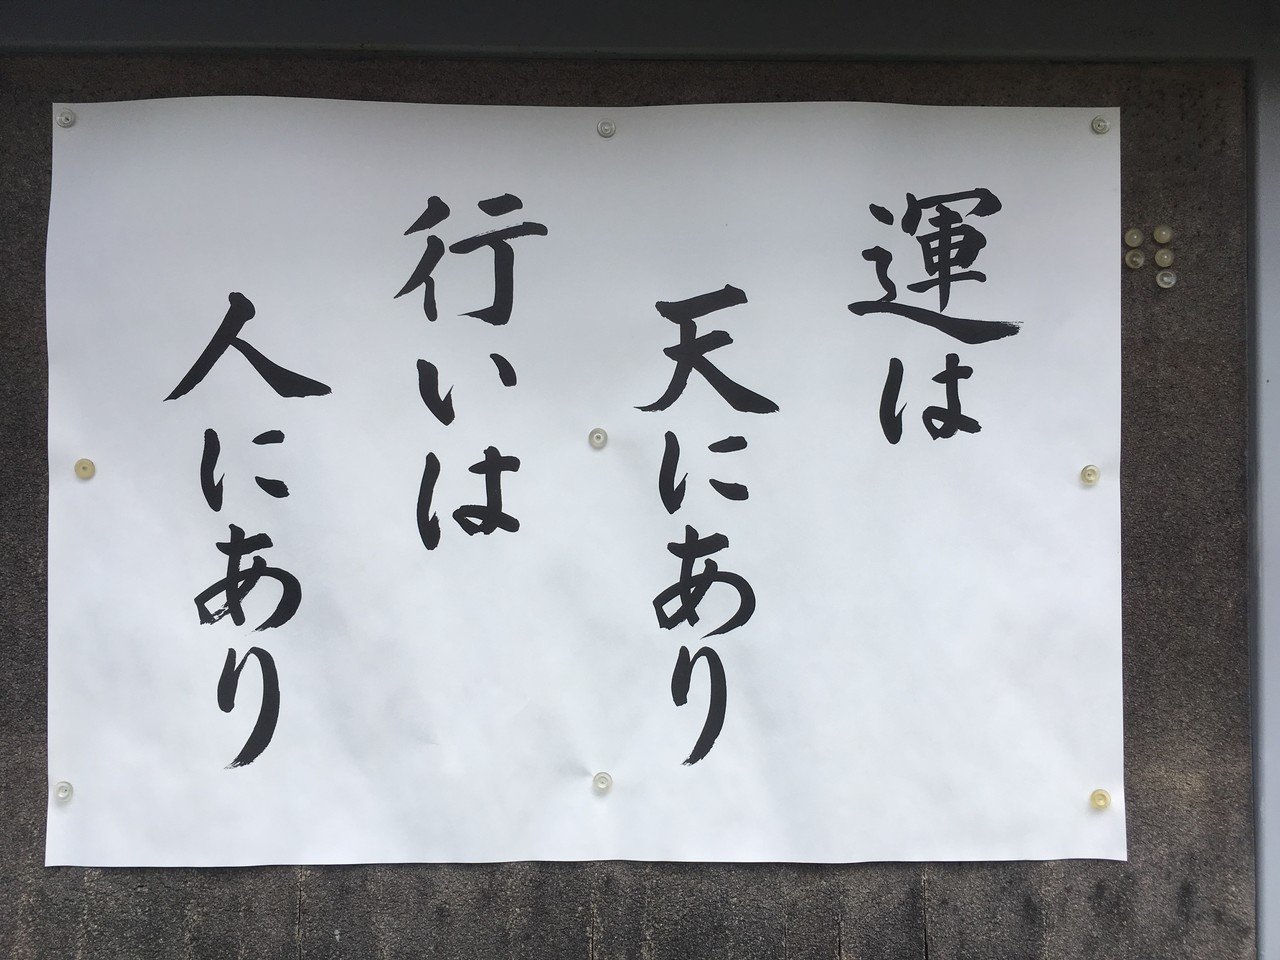 運は
天にあり
行いは
人にあり